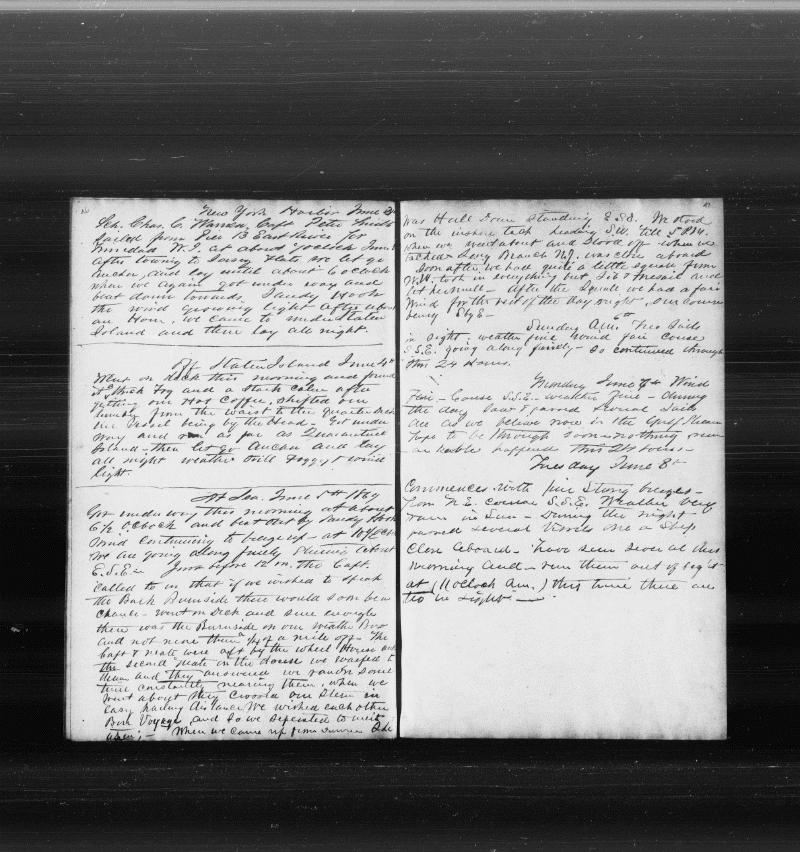 New York Harbor June 3d
Sch. Chas. C. Warren, Capt Peter Smith
Sailed from Pier East River for
Trinidad W.I. at about 7 oclock June
after towing to Jersey Flats we let go
Anchor, and lay until about 6 oclock
when we again got under way and
beat down towards Sandy Hook
the wind growing light after about
an Hour, we came to under Staten
Island and there lay all night.
Off Staten Island June 4th
Went on deck this morning and found
a thick Fog and a stark calm after
getting our Hot Coffee, shifted our
from the waist to the Quarter Deck
the Vessel being by the Head - Got under
way and run as far as Quarantine
Island - then let go Anchor and lay
all night weather still Foggy & wind
light.
At Sea. June 5th 1869
Got under way this morning at about
6½ O.Clock and beat out by Sandy Hook
Wind continuing to at 10 oclock
We are going along finely Steering about
E.S.E - Just before 12 m. the Capt.
called to us that if we wished to speak
the Bark Burnside there would soon be a
chance - went on Deck and sure enough
there was the Burnside on our Weather Bow
and not more than a ¼ of a mile off - The
Capt & mate were aft by the wheel House and
the second mate on the house we waved to
them and they answered we
time constantly nearing them, when we
went about they crossed our Stern in
easy hailing distance We wished each other
Bon Voyage, and so we seperated to meet
again; - When we came up from dinner She
was Hull Down standing E.S.E. We stood
on the inshore tack heading S.W. till 5 P.M.
when we went about and Stood off - when we
tacked Long Branch N.J. was close aboard
Soon after we had quite a little squall from
N.W. took in everything but Jib & Foresail and
let her scull - After the Squall we had a fair
Wind for the rest of the day & night, our Course
being S by E -
Sunday 6th A.M. Two Sails
in sight, weather fine wind fair course
S.S.E. going along finely - So continued through
this 24 Hours.
Monday June 7th Wind
Fair - Course S.S.E - weather fine - during
the day saw & passed several Sails
Are as we believe now in the Gulf Stream
hope to be through soon - nothing rem
arkable happend this 24 hours -
Tuesday June 8th
Commences with fine Strong breezes -
from N.E. course S.S.E. Weather very
warm in Sun - During the night
passed several Vessels one a Ship
Close aboard - have seen several this
morning and - run them out of sight -
at (11 oclock Am.) this time there are
two in sight -